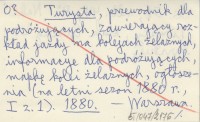 03
Turysta, przewodnik dla
podróżujących, zawierający roz-
kład jazdy na kolejach żelaznych,
informacye dla podróżujących,
mappę kolei żelaznych, ogłosze-
nia (na letni sezon 1880 r.,
I z. 1). 1880. – Warszawa